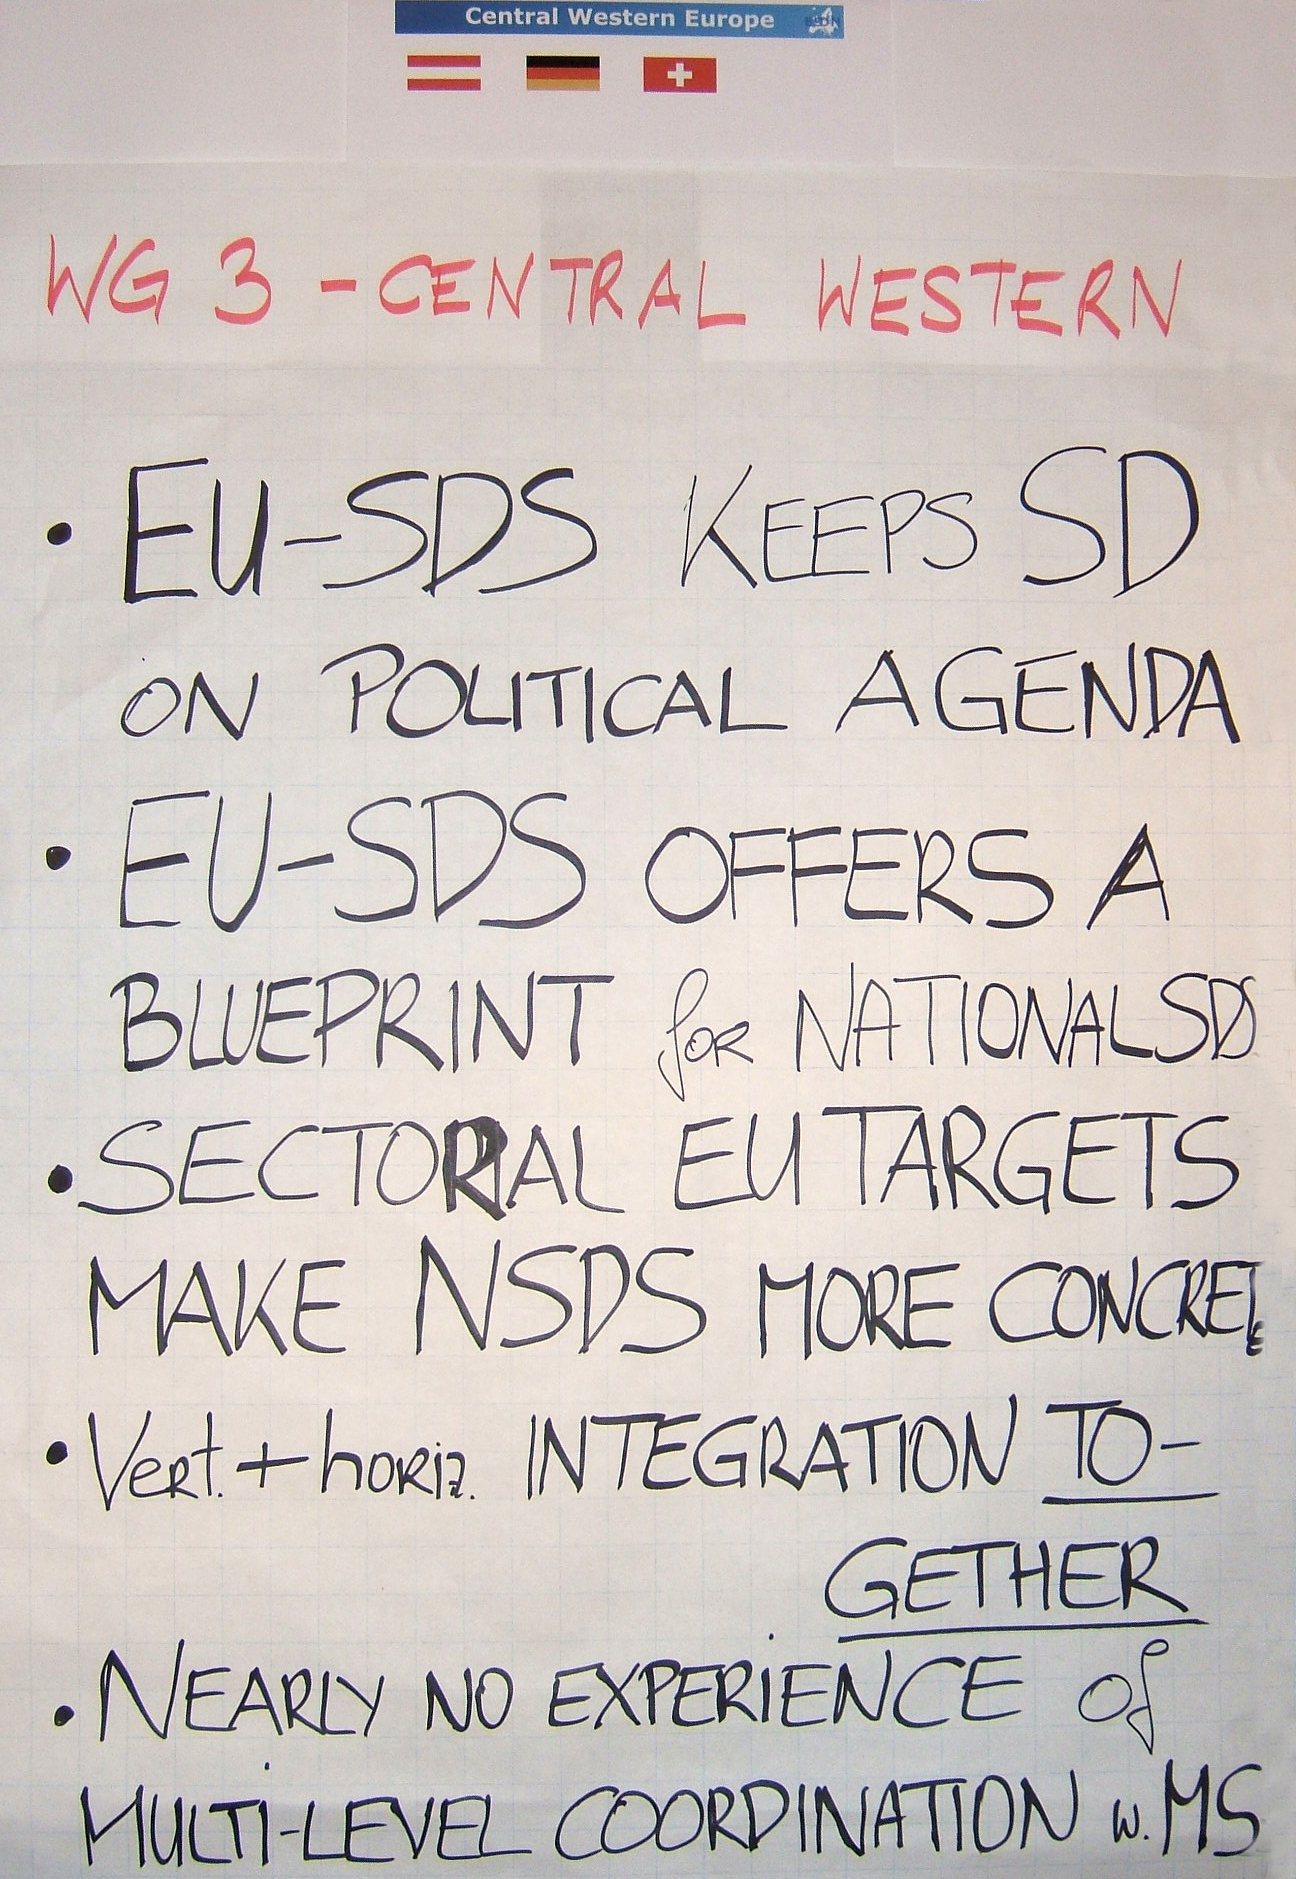 Central Western Europe
WG 3 - CENTRAL WESTERN
• EU-SDS KEEPS SD
ON POLITICAL AGENDA
• EU-SDS OFFERS A
BLUEPRINT for NATIONAL SDS
• SECTORAL EU TARGETS
MAKE NSDS MORE CONCRETE
• Vert. + horiz. INTEGRATION TO-
GETHER
• NEARLY NO EXPERIENCE of
MULTI-LEVEL COORDINATION w. MS